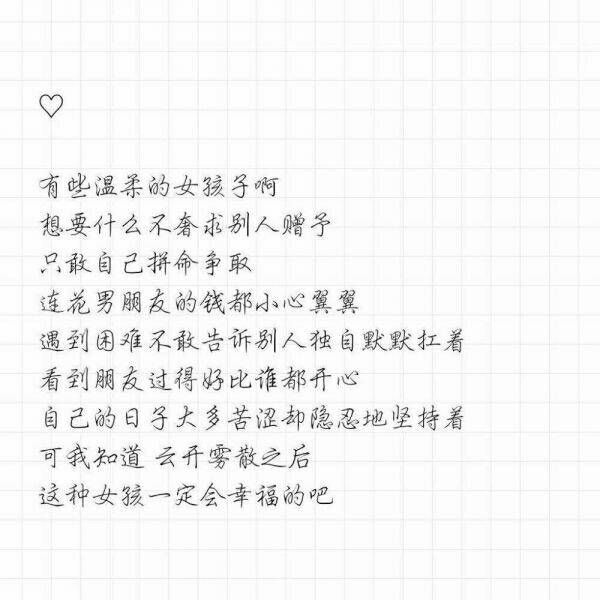 ♡
有些温柔的女孩子啊
想要什么不奢求别人赠予
只敢自己拼命争取
连花男朋友的钱都小心翼翼
遇到困难不敢告诉别人独自默默扛着
看到朋友过得好比谁都开心
自己的日子大多苦涩却隐忍地坚持着
可我知道 云开雾散之后
这种女孩一定会幸福的吧